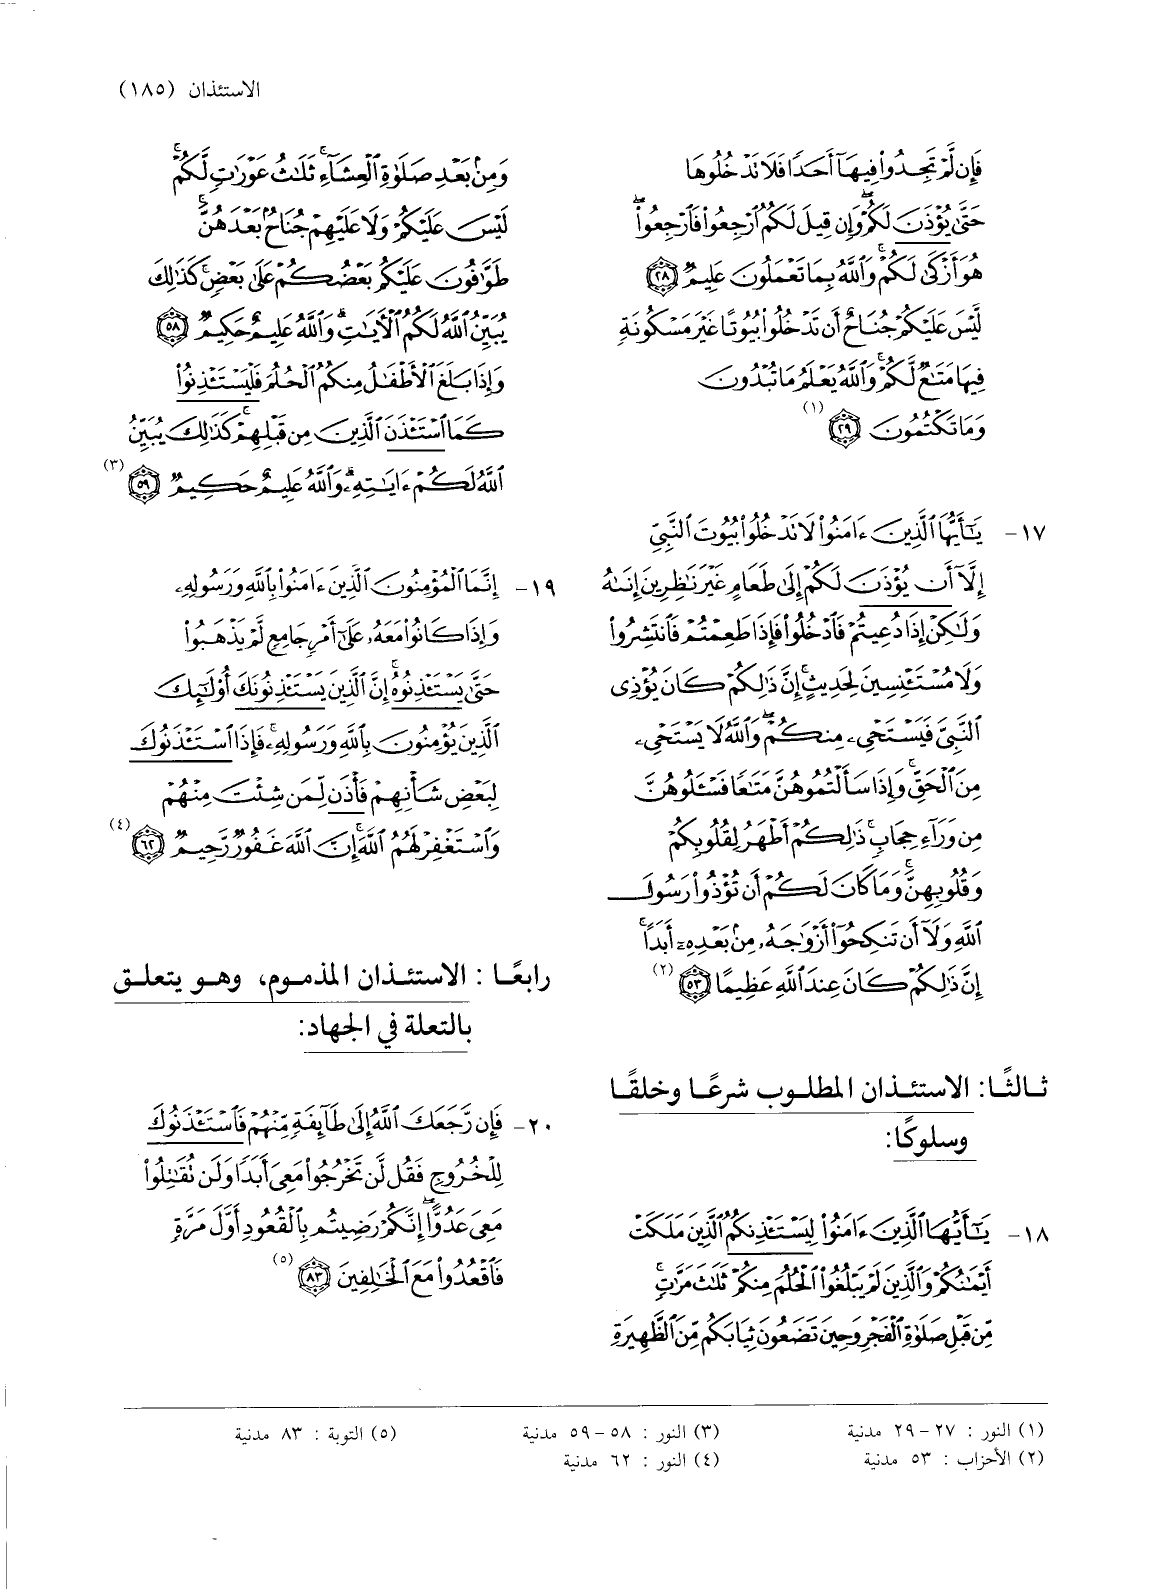 الاستئذان (١٨٥)
فَإِن لَّمْ تَجِدُوا۟ فِيهَآ أَحَدًا فَلَا تَدْخُلُوهَا
حَتَّىٰ يُؤْذَنَ لَكُمْ ۖ وَإِن قِيلَ لَكُمُ ٱرْجِعُوا۟ فَٱرْجِعُوا۟ ۖ
هُوَ أَزْكَىٰ لَكُمْ ۚ وَٱللَّهُ بِمَا تَعْمَلُونَ عَلِيمٌ ﴿٢٨﴾
لَّيْسَ عَلَيْكُمْ جُنَاحٌ أَن تَدْخُلُوا۟ بُيُوتًا غَيْرَ مَسْكُونَةٍ
فِيهَا مَتَـٰعٌ لَّكُمْ ۚ وَٱللَّهُ يَعْلَمُ مَا تُبْدُونَ
وَمَا تَكْتُمُونَ ﴿٢٩﴾ (١)
١٧- يَـٰٓأَيُّهَا ٱلَّذِينَ ءَامَنُوا۟ لَا تَدْخُلُوا۟ بُيُوتَ ٱلنَّبِىِّ
إِلَّآ أَن يُؤْذَنَ لَكُمْ إِلَىٰ طَعَامٍ غَيْرَ نَـٰظِرِينَ إِنَىٰهُ
وَلَـٰكِنْ إِذَا دُعِيتُمْ فَٱدْخُلُوا۟ فَإِذَا طَعِمْتُمْ فَٱنتَشِرُوا۟
وَلَا مُسْتَـْٔنِسِينَ لِحَدِيثٍ ۚ إِنَّ ذَٰلِكُمْ كَانَ يُؤْذِى
ٱلنَّبِىَّ فَيَسْتَحْىِۦ مِنكُمْ ۖ وَٱللَّهُ لَا يَسْتَحْىِۦ
مِنَ ٱلْحَقِّ ۚ وَإِذَا سَأَلْتُمُوهُنَّ مَتَـٰعًا فَسْـَٔلُوهُنَّ
مِن وَرَآءِ حِجَابٍ ۚ ذَٰلِكُمْ أَطْهَرُ لِقُلُوبِكُمْ
وَقُلُوبِهِنَّ ۚ وَمَا كَانَ لَكُمْ أَن تُؤْذُوا۟ رَسُولَ
ٱللَّهِ وَلَآ أَن تَنكِحُوٓا۟ أَزْوَٰجَهُۥ مِنۢ بَعْدِهِۦٓ أَبَدًا ۚ
إِنَّ ذَٰلِكُمْ كَانَ عِندَ ٱللَّهِ عَظِيمًا ﴿٥٣﴾ (٢)
ثالثًا: الاستئذان المطلوب شرعًا وخلقًا
وسلوكًا:
١٨- يَـٰٓأَيُّهَا ٱلَّذِينَ ءَامَنُوا۟ لِيَسْتَـْٔذِنكُمُ ٱلَّذِينَ مَلَكَتْ
أَيْمَـٰنُكُمْ وَٱلَّذِينَ لَمْ يَبْلُغُوا۟ ٱلْحُلُمَ مِنكُمْ ثَلَـٰثَ مَرَّٰتٍ ۚ
مِّن قَبْلِ صَلَوٰةِ ٱلْفَجْرِ وَحِينَ تَضَعُونَ ثِيَابَكُم مِّنَ ٱلظَّهِيرَةِ
وَمِنۢ بَعْدِ صَلَوٰةِ ٱلْعِشَآءِ ۚ ثَلَـٰثُ عَوْرَٰتٍ لَّكُمْ ۚ
لَيْسَ عَلَيْكُمْ وَلَا عَلَيْهِمْ جُنَاحٌۢ بَعْدَهُنَّ ۚ
طَوَّٰفُونَ عَلَيْكُم بَعْضُكُمْ عَلَىٰ بَعْضٍ ۚ كَذَٰلِكَ
يُبَيِّنُ ٱللَّهُ لَكُمُ ٱلْـَٔايَـٰتِ ۗ وَٱللَّهُ عَلِيمٌ حَكِيمٌ ﴿٥٨﴾
وَإِذَا بَلَغَ ٱلْأَطْفَـٰلُ مِنكُمُ ٱلْحُلُمَ فَلْيَسْتَـْٔذِنُوا۟
كَمَا ٱسْتَـْٔذَنَ ٱلَّذِينَ مِن قَبْلِهِمْ ۚ كَذَٰلِكَ يُبَيِّنُ
ٱللَّهُ لَكُمْ ءَايَـٰتِهِۦ ۗ وَٱللَّهُ عَلِيمٌ حَكِيمٌ ﴿٥٩﴾ (٣)
١٩- إِنَّمَا ٱلْمُؤْمِنُونَ ٱلَّذِينَ ءَامَنُوا۟ بِٱللَّهِ وَرَسُولِهِۦ
وَإِذَا كَانُوا۟ مَعَهُۥ عَلَىٰٓ أَمْرٍ جَامِعٍ لَّمْ يَذْهَبُوا۟
حَتَّىٰ يَسْتَـْٔذِنُوهُ ۚ إِنَّ ٱلَّذِينَ يَسْتَـْٔذِنُونَكَ أُو۟لَـٰٓئِكَ
ٱلَّذِينَ يُؤْمِنُونَ بِٱللَّهِ وَرَسُولِهِۦ ۚ فَإِذَا ٱسْتَـْٔذَنُوكَ
لِبَعْضِ شَأْنِهِمْ فَأْذَن لِّمَن شِئْتَ مِنْهُمْ
وَٱسْتَغْفِرْ لَهُمُ ٱللَّهَ ۚ إِنَّ ٱللَّهَ غَفُورٌ رَّحِيمٌ ﴿٦٢﴾ (٤)
رابعًا: الاستئذان المذموم، وهو يتعلق
بالتعلة في الجهاد:
٢٠- فَإِن رَّجَعَكَ ٱللَّهُ إِلَىٰ طَآئِفَةٍ مِّنْهُمْ فَٱسْتَـْٔذَنُوكَ
لِلْخُرُوجِ فَقُل لَّن تَخْرُجُوا۟ مَعِىَ أَبَدًا وَلَن تُقَـٰتِلُوا۟
مَعِىَ عَدُوًّا ۖ إِنَّكُمْ رَضِيتُم بِٱلْقُعُودِ أَوَّلَ مَرَّةٍ
فَٱقْعُدُوا۟ مَعَ ٱلْخَـٰلِفِينَ ﴿٨٣﴾ (٥)
(١) النور : ٢٧ - ٢٩ مدنية
(٢) الأحزاب : ٥٣ مدنية
(٣) النور : ٥٨ - ٥٩ مدنية
(٤) النور : ٦٢ مدنية
(٥) التوبة : ٨٣ مدنية